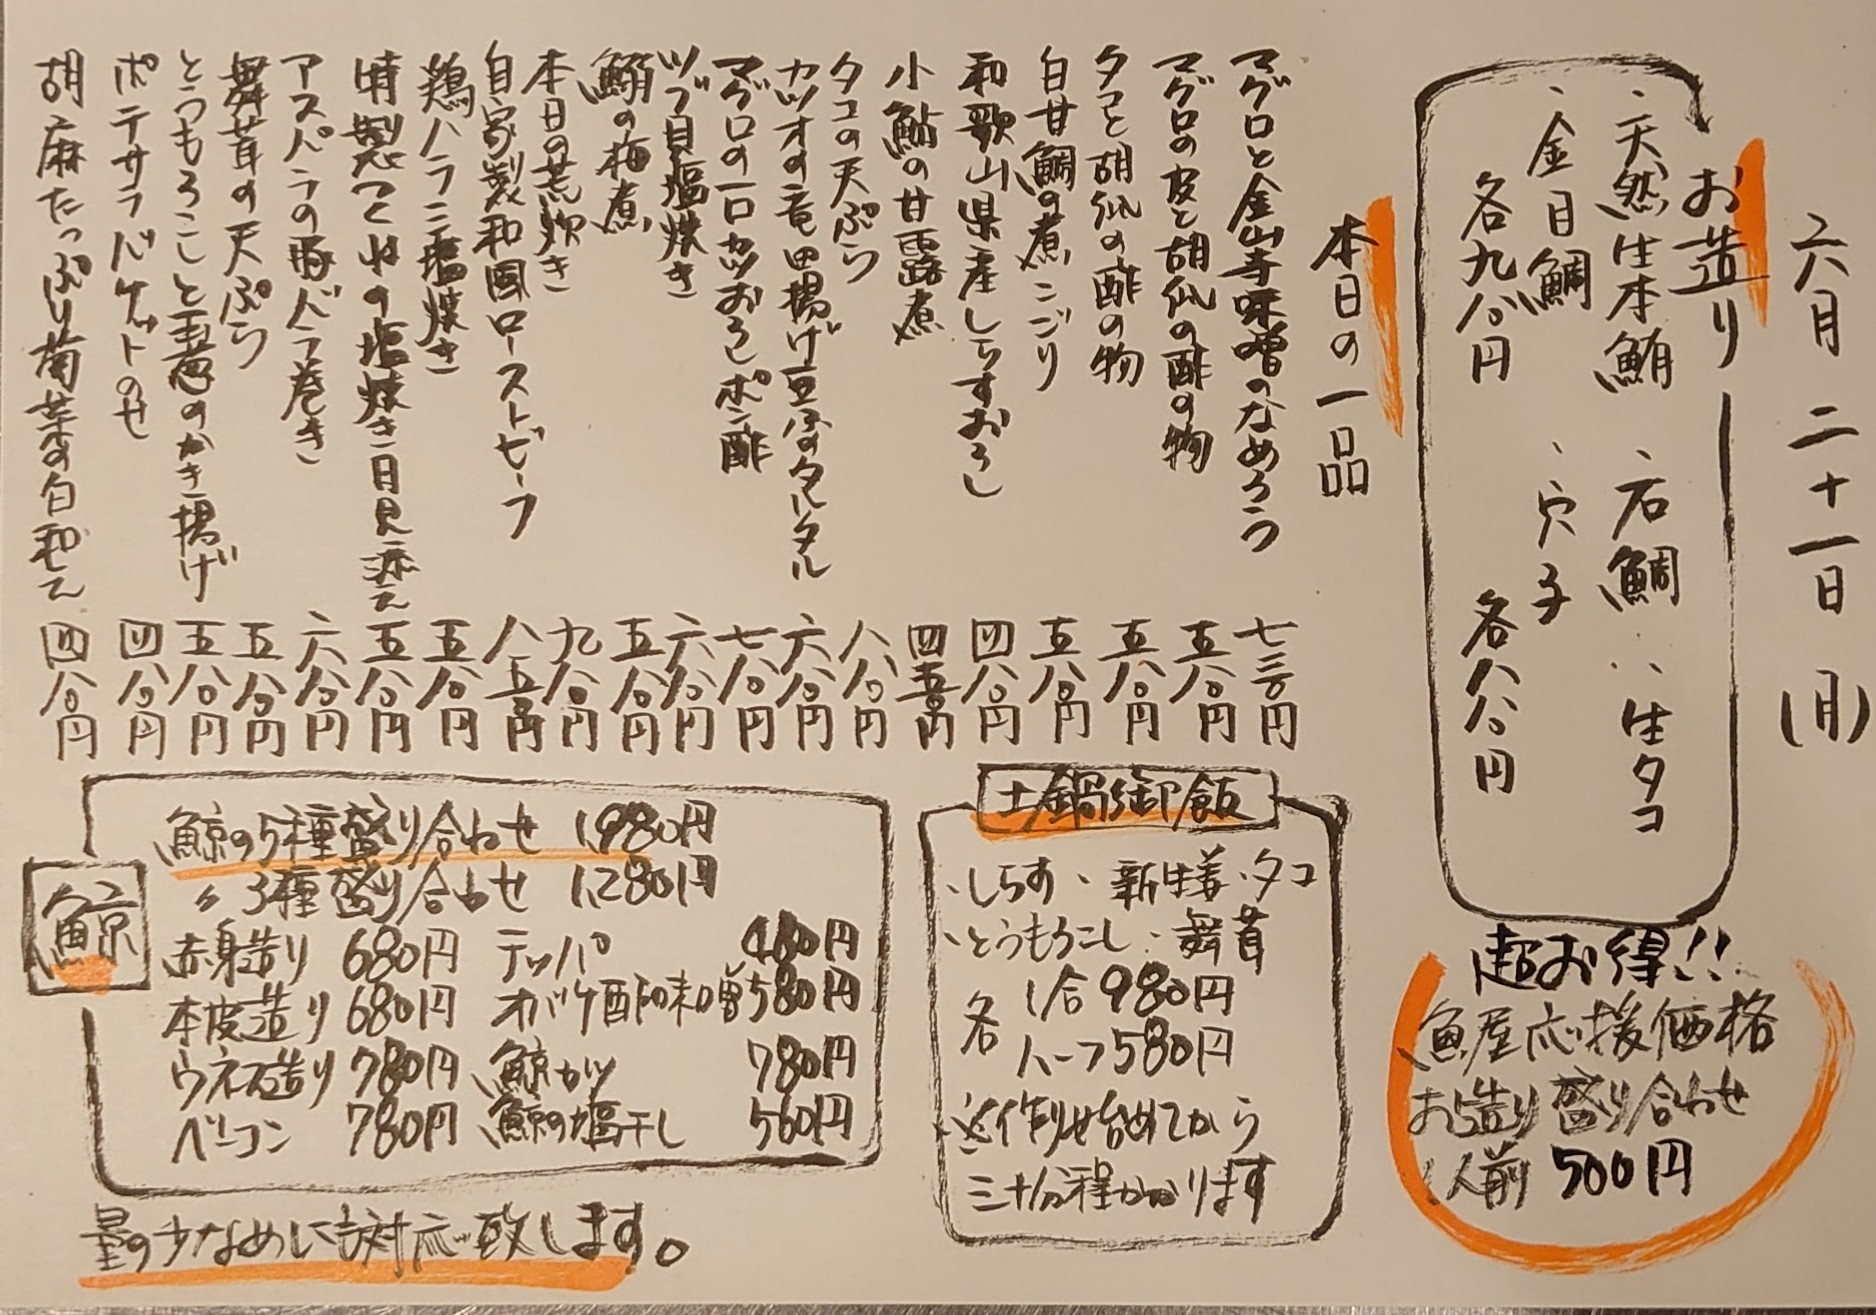 六月二十一日(月)
お造り
・天然生本鮪 ・石鯛 ・生タコ
・金目鯛 ・穴子
各九八〇円 各八八〇円
超お得!!
魚屋応援価格
お造り盛り合わせ
1人前 500円
本日の一品
マグロと金山寺味噌のなめろう 七三〇円
マグロの皮と胡瓜の酢の物 五八〇円
タコと胡瓜の酢の物 五八〇円
白甘鯛の煮こごり 五八〇円
和歌山県産しらすおろし 四八〇円
小鮎の甘露煮 四五〇円
タコの天ぷら 八八〇円
カツオの竜田揚げ豆ふのタルタル 六八〇円
マグロの一口カツおろしポン酢 七八〇円
ツブ貝塩焼き 六八〇円
鰯の梅煮 五八〇円
本日の荒炊き 九八〇円
自家製和風ローストビーフ 八五〇円
鶏ハラミ塩焼き 五八〇円
特製つくねの塩焼き月見添え 五八〇円
アスパラの豚バラ巻き 六八〇円
舞茸の天ぷら 五八〇円
とうもろこしと玉葱のかき揚げ 五八〇円
ポテサラバゲットのせ 四八〇円
胡麻たっぷり菊菜の白和え 四八〇円
土鍋御飯
・しらす ・新生姜 ・タコ
・とうもろこし ・舞茸
各 1合980円
ハーフ580円
※作り始めてから
三十分程かかります
鯨
鯨の5種盛り合わせ 1,980円
〃 3種盛り合わせ 1,280円
赤身造り 680円 テッパ 480円
本皮造り 680円 オバケ酢味噌 580円
ウネス造り 780円 鯨カツ 780円
ベーコン 780円 鯨の塩干し 560円
量の少なめにも対応致します。